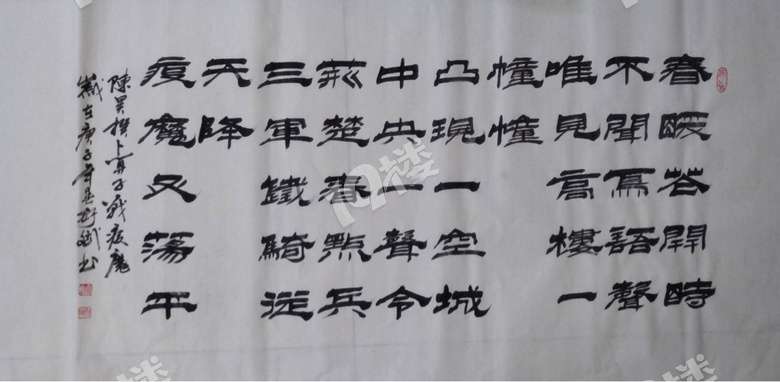 春暖花開時
不聞鳥語聲
唯見高樓一
幢幢
凸現一空城
中央一聲令
荊楚春點兵
三軍鐵騎從
天降
疫魔又蕩平
陳昊撰卜算子戰疫魔
歲在庚子年書
19楼